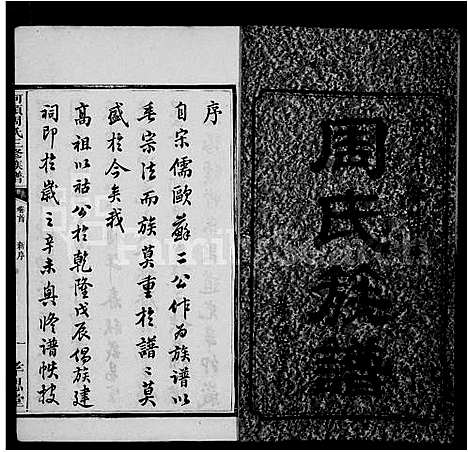 周氏族譜
序
自宋儒歐蘇二公作為族譜以
垂宗法而族莫重於譜譜莫
盛於今矣我
高祖以祜公於乾隆戊辰倡族建
祠即於歲之辛未輿脩譜帙披
周氏三修族譜
卷首
新序
一
孝思堂
FamilySearch